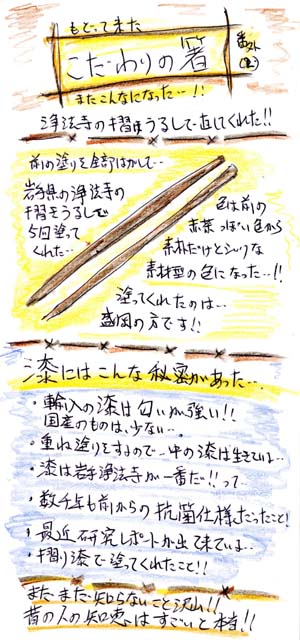 もどって来た
こだわりの箸
番外
またこんなになった…!!
浄法寺の摺りうるしで直してくれた!!
前の塗りを全部はがして…
岩手県の浄法寺の
摺りうるしで
5回塗って
くれた…
色は前の
赤茶っぽい色から
素朴だけどシックな
素材型の色になった…!!
塗ってくれたのは…
盛岡の方です!!
漆にはこんな秘密があった…
・輸入の漆は匂いが強い!!
国産のものは、少ない…
・重ね塗りをするので…中の漆は生きている…
・漆は岩手浄法寺が一番だ!!って…
・数千年も前からの抗菌仕様だったこと!
・最近研究レポートが出て来ている…
・摺り漆で塗ってくれたこと!!
まだまだ知らないこと沢山!!
昔の人の知恵はすごいと本当!!